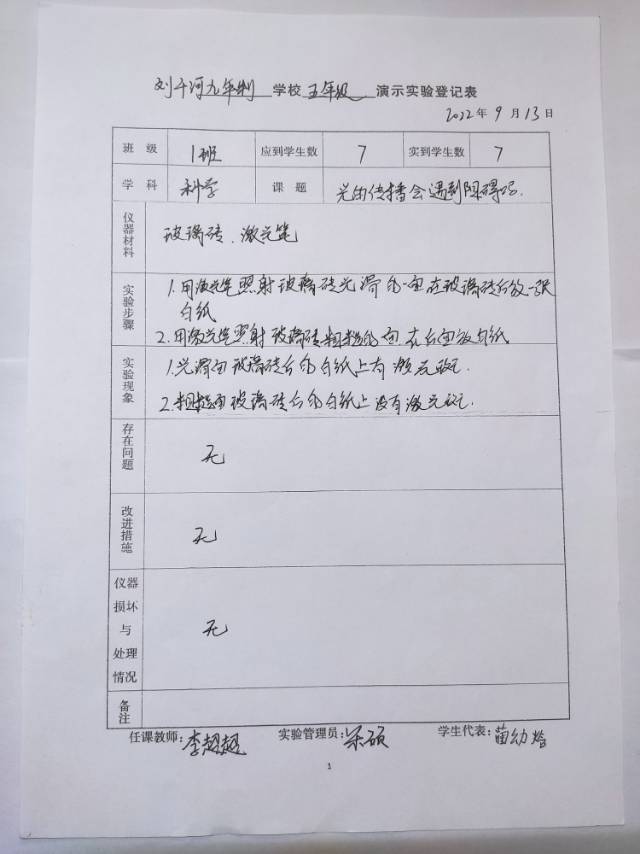 刘千河九年制 学校 五年级 演示实验登记表
2022年9月13日
班级 1班 应到学生数 7 实到学生数 7
学科 科学 课题 光的传播会遇到阻碍吗.
仪器材料 玻璃砖、激光笔
实验步骤 1.用激光笔照射玻璃砖光滑的一面在玻璃砖后放一张
白纸
2.用激光笔照射玻璃砖粗糙的面在后面放白纸
实验现象 1.光滑面玻璃砖后的白纸上有激光斑.
2.粗糙面玻璃砖后的白纸上没有激光斑.
存在问题 无
改进措施 无
仪器损坏与处理情况 无
备注
任课教师:李超超 实验管理员: 学生代表:苗幼
1